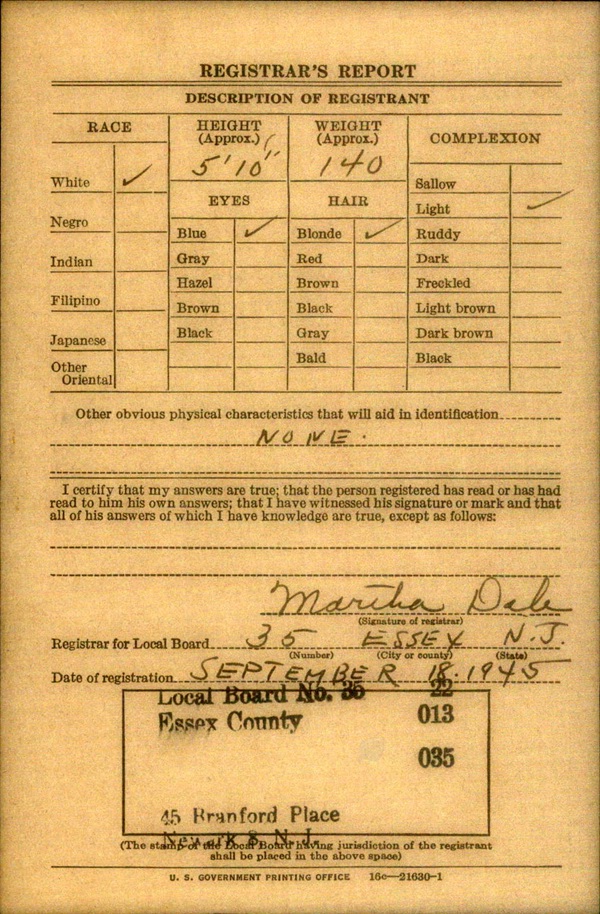 REGISTRAR'S REPORT
DESCRIPTION OF REGISTRANT
RACE
White ✓
Negro
Indian
Filipino
Japanese
Other
Oriental
HEIGHT
(Approx.)
5' 10"
WEIGHT
(Approx.)
140
EYES
Blue ✓
Gray
Hazel
Brown
Black
HAIR
Blonde ✓
Red
Brown
Black
Gray
Bald
COMPLEXION
Sallow
Light ✓
Ruddy
Dark
Freckled
Light brown
Dark brown
Black
Other obvious physical characteristics that will aid in identification
NONE.
I certify that my answers are true; that the person registered has read or has had
read to him his own answers; that I have witnessed his signature or mark and that
all of his answers of which I have knowledge are true, except as follows:
Martha Dale
(Signature of registrar)
Registrar for Local Board 35 ESSEX N.J.
(Number) (City or county) (State)
Date of registration SEPTEMBER 18. 1945
Local Board No. 35 22
Essex County 013
035
45 Branford Place
Newark 8 N.J.
(The stamp of the Local Board having jurisdiction of the registrant
shall be placed in the above space)
U. S. GOVERNMENT PRINTING OFFICE 16c—21630-1